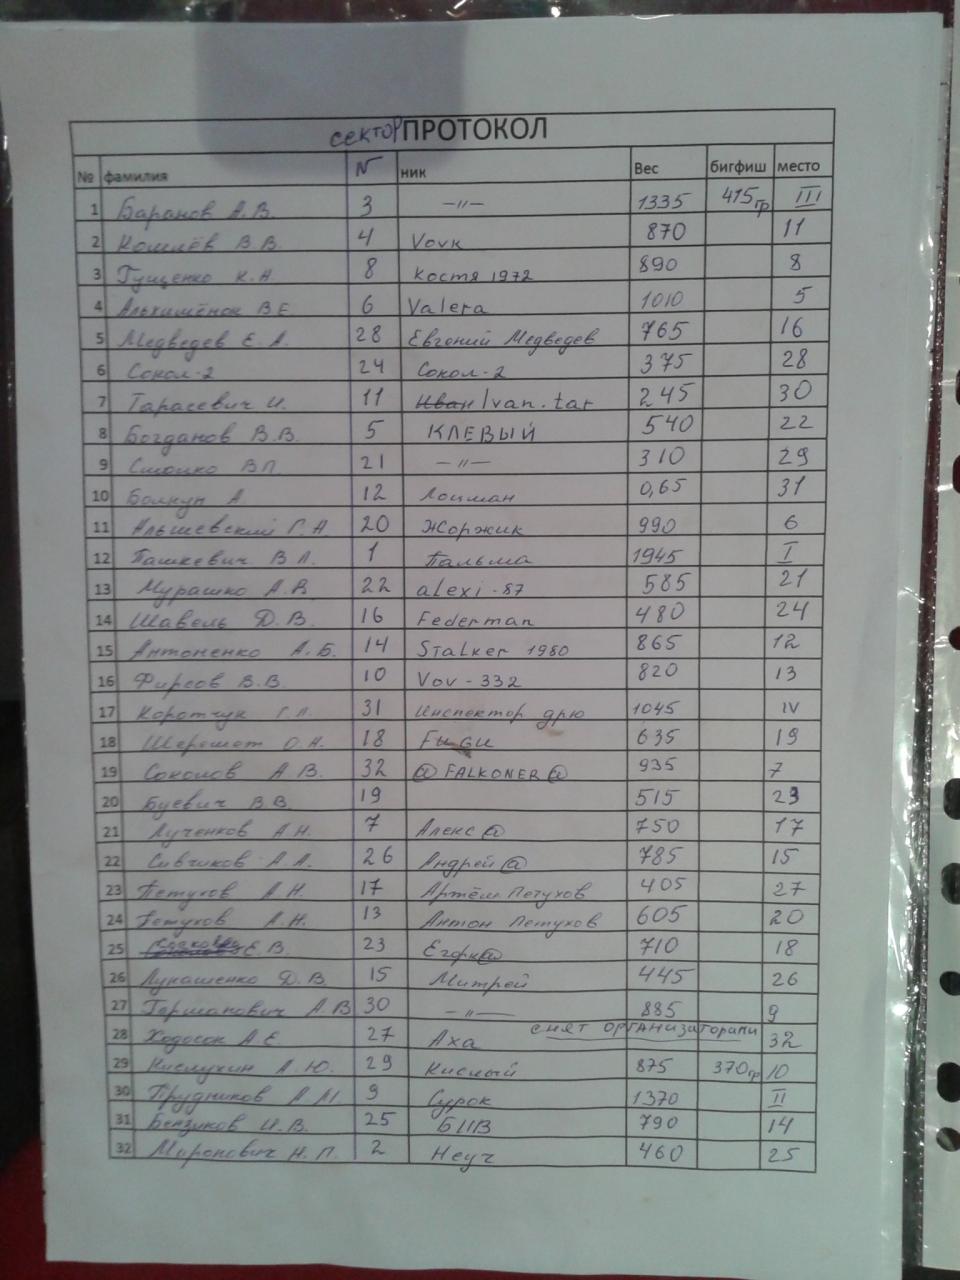 сектор ПРОТОКОЛ
№ фамилия N ник Вес бигфиш место
1 Баранов А.В. 3 —"— 1335 415гр III
2 Комлёв В.В. 4 Vovk 870 11
3 Гущенко К.А. 8 Костя 1972 890 8
4 Альхимёнок В.Е 6 Valera 1010 5
5 Медведев Е.А. 28 Евгений Медведев 765 16
6 Сокол-2 24 Сокол-2 375 28
7 Тарасевич И. 11 Иван Ivan.tar 245 30
8 Богданов В.В. 5 КЛЕВЫЙ 540 22
9 В.П. 21 —"— 310 29
10 А 12 Лоцман 0,65 31
11 Альшевский Г.А. 20 Жоржик 990 6
12 Пашкевич В.Л. 1 Пальма 1945 I
13 Мурашко А.В. 22 alexi-87 585 21
14 Шавель Д.В. 16 Federman 480 24
15 Антоненко А.Б. 14 Stalker 1980 865 12
16 Фирсов В.В. 10 Vov-332 820 13
17 Коротчук Г.Л. 31 Инспектор дрю 1045 IV
18 Шерешет О.Н. 18 635 19
19 Соколов А.В. 32 @FALKONER@ 935 7
20 Буевич В.В. 19 515 23
21 Лученков А.Н. 7 Алекс@ 750 17
22 Сивчиков А.А. 26 Андрей@ 785 15
23 Петухов А.Н. 17 Артём Петухов 405 27
24 Петухов А.Н. 13 Антон Петухов 605 20
25 Е.В. 23 710 18
26 Лукашенко Д.В. 15 Митрей 445 26
27 Германович А.В 30 —"— 885 9
28 Ходосок А.Е. 27 Аха снят организаторами 32
29 Кислухин А.Ю. 29 Кислый 875 370гр 10
30 Прудников А.М. 9 Сурок 1370 II
31 Бензиков И.В. 25 БИВ 790 14
32 Миронович Н.П. 2 Неуч 460 25